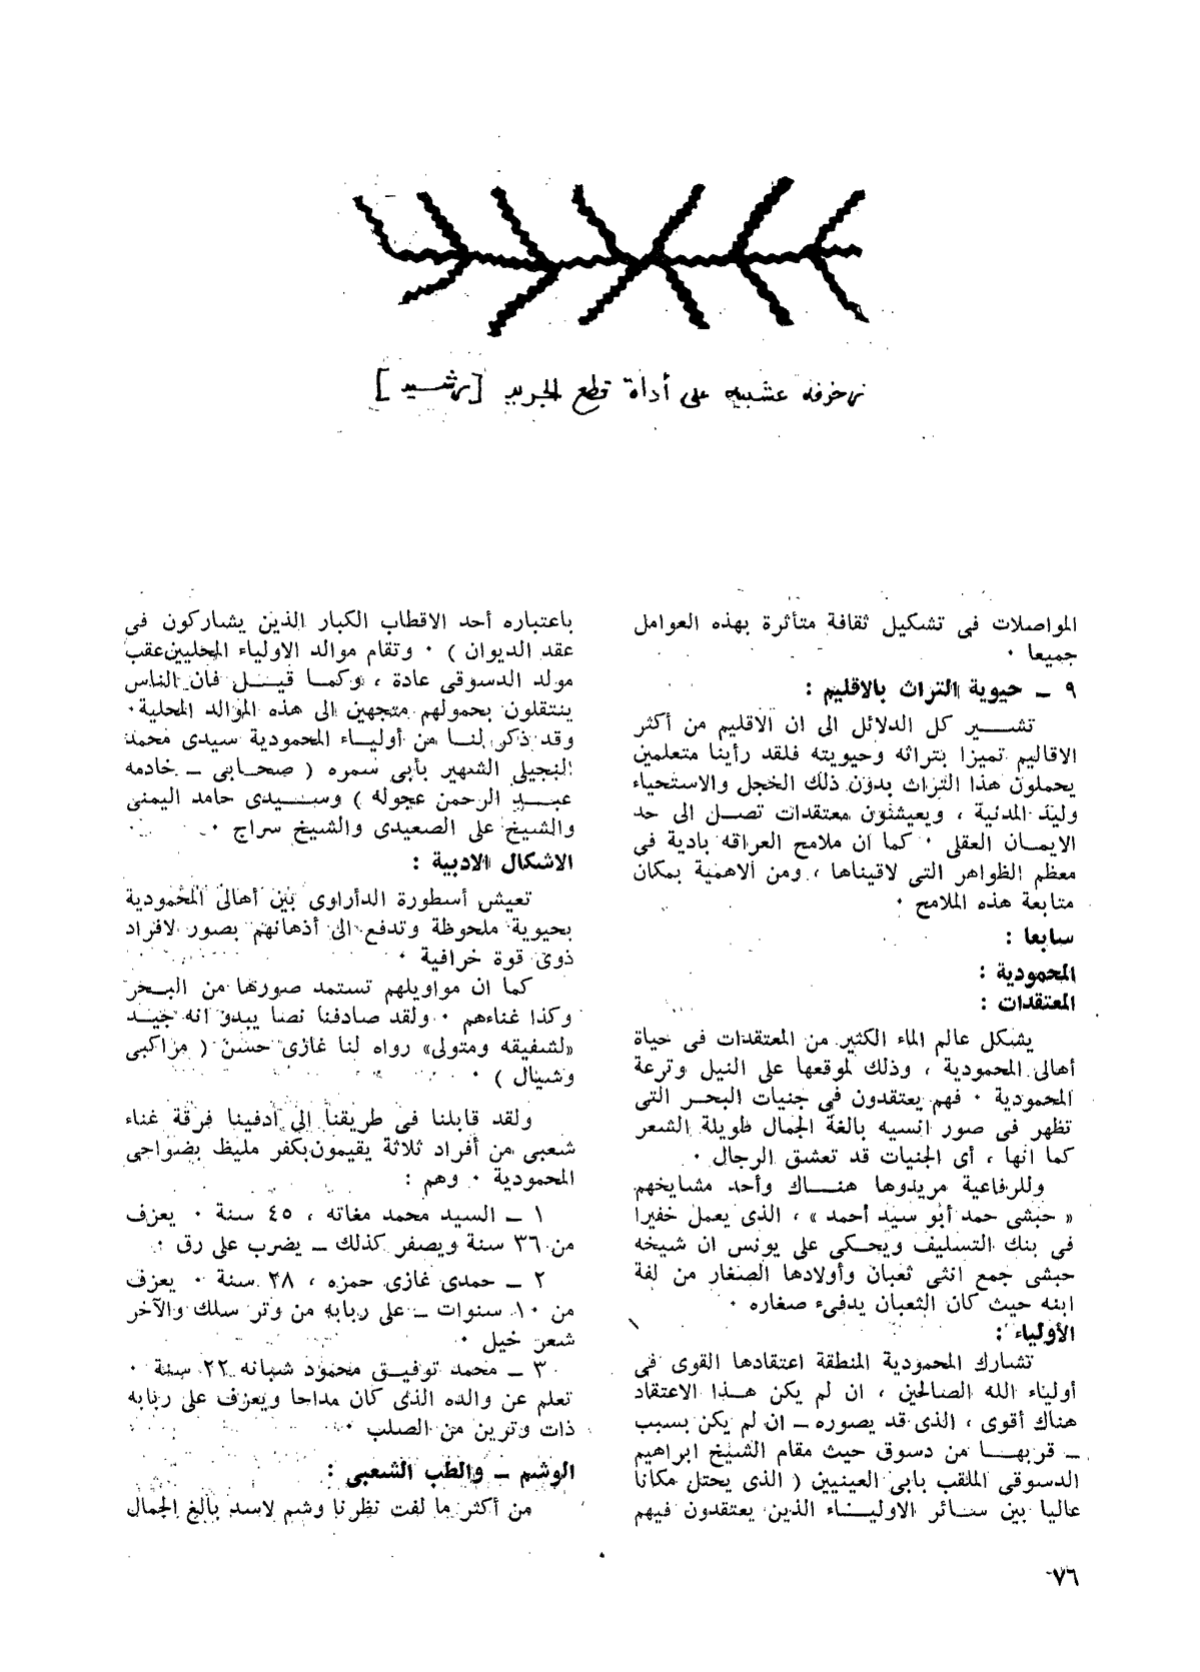 زخرفه عشبيه على أداة قطع الجريد [رشـــيد]
المواصلات فى تشكيل ثقافة متأثرة بهذه العوامل
جميعا ٠
٩ ــ حيوية التراث بالاقليم :
تشــــير كل الدلائل الى ان الاقليم من أكثر
الاقاليم تميزا بتراثه وحيويته فلقد رأينا متعلمين
يحملون هذا التراث بدون ذلك الخجل والاستحياء
وليد المدنية ، ويعيشون معتقدات تصــل الى حد
الايمــان العقلى ٠ كما ان ملامح العراقه بادية فى
معظم الظواهر التى لاقيناها ، ومن الاهمية بمكان
متابعة هذه الملامح ٠
سابعا :
المحمودية :
المعتقدات :
يشكل عالم الماء الكثير من المعتقدات فى حياة
أهالى المحمودية ، وذلك لموقعها على النيل وترعة
المحمودية ٠ فهم يعتقدون فى جنيات البحــر التى
تظهر فى صور انسيه بالغة الجمال طويلة الشعر
كما انها ، أى الجنيات قد تعشق الرجال ٠
وللرفاعية مريدوها هنــــاك وأحد مشايخهم
« حبشى حمد أبو سيد أحمد » ، الذى يعمل خفيرا
فى بنك التسليف ويحــكى على يونس ان شيخه
حبشى جمع انثى ثعبان وأولادها الصغار من لفة
ابنه حيث كان الثعبان يدفىء صغاره ٠
الأولياء :
تشارك المحمودية المنطقة اعتقادها القوى فى
أولياء الله الصالحين ، ان لم يكن هــذا الاعتقاد
هناك أقوى ، الذى قد يصوره ــ ان لم يكن بسبب
ــ قربهــــا من دسوق حيث مقام الشيخ ابراهيم
الدسوقى الملقب بابى العينيين ( الذى يحتل مكانا
عاليا بين ســائر الاوليــــاء الذين يعتقدون فيهم
باعتباره أحد الاقطاب الكبار الذين يشاركون فى
عقد الديوان ) ٠ وتقام موالد الاولياء المحليين عقب
مولد الدسوقى عادة ، وكمــا قيــــل فان الناس
ينتقلون بحمولهم متجهين الى هذه الموالد المحلية ٠
وقد ذكر لنــا من أوليــاء المحمودية سيدى محمد
النجيلى الشهير بأبى سمره ( صحــابى ــ خادمه
عبــــد الرحمن عجوله ) وســــيدى حامد اليمنى
والشيخ على الصعيدى والشيخ سراج ٠
الاشكال الادبية :
تعيش أسطورة الدأراوى بين أهالى المحمودية
بحيوية ملحوظة وتدفع الى أذهانهم بصور لافراد
ذوى قوة خرافية ٠
كما ان مواويلهم تستمد صورتها من البــحر
وكذا غناءهم ٠ ولقد صادفنا نصا يبدو انه جيــد
«لشفيقه ومتولى» رواه لنا غازى حسن ( مراكبى
وشيال ) ٠
ولقد قابلنا فى طريقنا الى أدفينا فرقة غناء
شعبى من أفراد ثلاثة يقيمون بكفر مليط بضواحى
المحمودية ٠ وهم :
١ ــ السيد محمد مغاته ، ٤٥ سنة ٠ يعزف
من ٣٦ سنة ويصفر كذلك ــ يضرب على رق ٠
٢ ــ حمدى غازى حمزه ، ٢٨ سنة ٠ يعزف
من ١٠ سنوات ــ على ربابه من وتر سلك والآخر
شعر خيل ٠
٣ ــ محمد توفيــق محمود شبانه ٢٢ سنة ٠
تعلم عن والده الذى كان مداحا ويعزف على ربابه
ذات وترين من الصلب ٠
الوشم ــ والطب الشعبى :
من أكثر ما لفت نظرنا وشم لاسد بالغ الجمال
٧٦